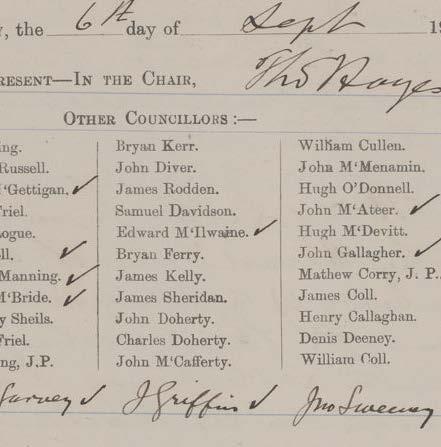 , the 6th day of Sept 19
RESENT—IN THE CHAIR, Thos Hayes
OTHER COUNCILLORS :—
ing. Bryan Kerr. William Cullen.
Russell. John Diver. John M'Menamin.
M'Gettigan. ✓ James Rodden. Hugh O'Donnell.
Friel. Samuel Davidson. John M'Ateer. ✓
Logue. Edward M'Ilwaine. ✓ Hugh M'Devitt.
ll. ✓ Bryan Ferry. John Gallagher. ✓
Manning. ✓ James Kelly. Mathew Corry, J. P.
M'Bride. ✓ James Sheridan. James Coll.
y Sheils. John Doherty. Henry Callaghan.
Friel. Charles Doherty. Denis Deeney.
ng, J.P. John M'Cafferty. William Coll.
Garvey ✓ J Griffin ✓ Jno Sweeney